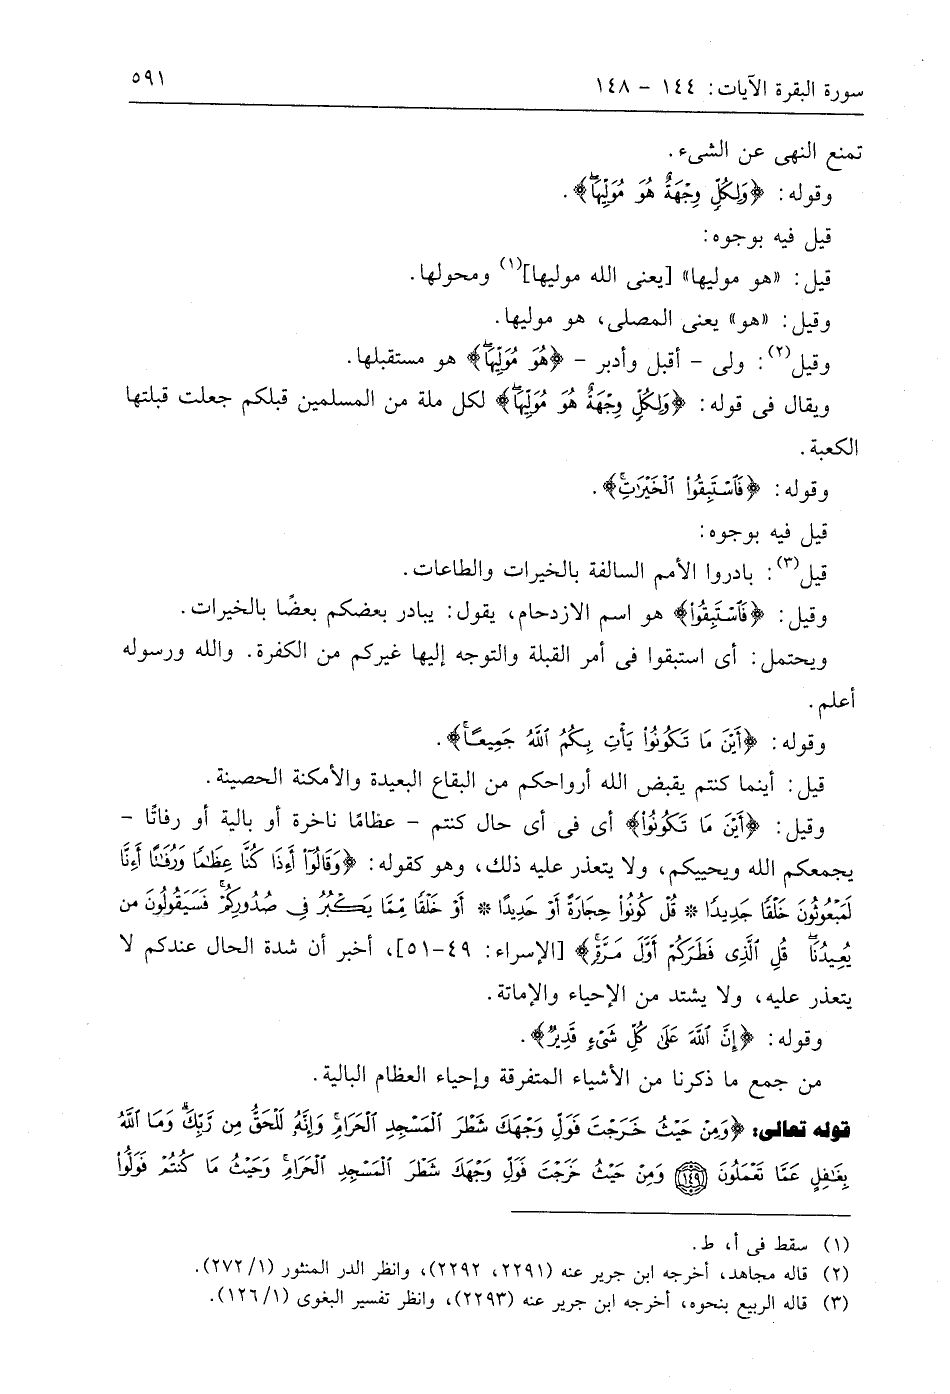 سورة البقرة الآيات: ١٤٤ - ١٤٨ ٥٩١
تمنع النهى عن الشىء.
وقوله: ﴿وَلِكُلٍّ وِجْهَةٌ هُوَ مُوَلِّيهَاۖ﴾.
قيل فيه بوجوه:
قيل: «هو موليها» [يعنى الله موليها](١) ومحولها.
وقيل: «هو» يعنى المصلى، هو موليها.
وقيل(٢): ولى - أقبل وأدبر - ﴿هُوَ مُوَلِّيهَاۖ﴾ هو مستقبلها.
ويقال فى قوله: ﴿وَلِكُلٍّ وِجْهَةٌ هُوَ مُوَلِّيهَاۖ﴾ لكل ملة من المسلمين قبلكم جعلت قبلتها
الكعبة.
وقوله: ﴿فَٱسْتَبِقُوا۟ ٱلْخَيْرَٰتِۚ﴾.
قيل فيه بوجوه:
قيل(٣): بادروا الأمم السالفة بالخيرات والطاعات.
وقيل: ﴿فَٱسْتَبِقُوا۟﴾ هو اسم الازدحام، يقول: يبادر بعضكم بعضًا بالخيرات.
ويحتمل: أى استبقوا فى أمر القبلة والتوجه إليها غيركم من الكفرة. والله ورسوله
أعلم.
وقوله: ﴿أَيْنَ مَا تَكُونُوا۟ يَأْتِ بِكُمُ ٱللَّهُ جَمِيعًاۚ﴾.
قيل: أينما كنتم يقبض الله أرواحكم من البقاع البعيدة والأمكنة الحصينة.
وقيل: ﴿أَيْنَ مَا تَكُونُوا۟﴾ أى فى أى حال كنتم - عظامًا ناخرة أو بالية أو رفاتًا -
يجمعكم الله ويحييكم، ولا يتعذر عليه ذلك، وهو كقوله: ﴿وَقَالُوٓا۟ أَءِذَا كُنَّا عِظَٰمًا وَرُفَٰتًا أَءِنَّا
لَمَبْعُوثُونَ خَلْقًا جَدِيدًا * قُلْ كُونُوا۟ حِجَارَةً أَوْ حَدِيدًا * أَوْ خَلْقًا مِّمَّا يَكْبُرُ فِى صُدُورِكُمْۚ فَسَيَقُولُونَ مَن
يُعِيدُنَاۖ قُلِ ٱلَّذِى فَطَرَكُمْ أَوَّلَ مَرَّةٍۚ﴾ [الإسراء: ٤٩-٥١]، أخبر أن شدة الحال عندكم لا
يتعذر عليه، ولا يشتد من الإحياء والإماتة.
وقوله: ﴿إِنَّ ٱللَّهَ عَلَىٰ كُلِّ شَىْءٍ قَدِيرٌ﴾.
من جمع ما ذكرنا من الأشياء المتفرقة وإحياء العظام البالية.
قوله تعالى: ﴿وَمِنْ حَيْثُ خَرَجْتَ فَوَلِّ وَجْهَكَ شَطْرَ ٱلْمَسْجِدِ ٱلْحَرَامِۖ وَإِنَّهُۥ لَلْحَقُّ مِن رَّبِّكَۗ وَمَا ٱللَّهُ
بِغَٰفِلٍ عَمَّا تَعْمَلُونَ ١٤٩ وَمِنْ حَيْثُ خَرَجْتَ فَوَلِّ وَجْهَكَ شَطْرَ ٱلْمَسْجِدِ ٱلْحَرَامِۚ وَحَيْثُ مَا كُنتُمْ فَوَلُّوا۟
(١) سقط فى أ، ط.
(٢) قاله مجاهد، أخرجه ابن جرير عنه (٢٢٩١، ٢٢٩٢)، وانظر الدر المنثور (١/ ٢٧٢).
(٣) قاله الربيع بنحوه، أخرجه ابن جرير عنه (٢٢٩٣)، وانظر تفسير البغوى (١/ ١٢٦).